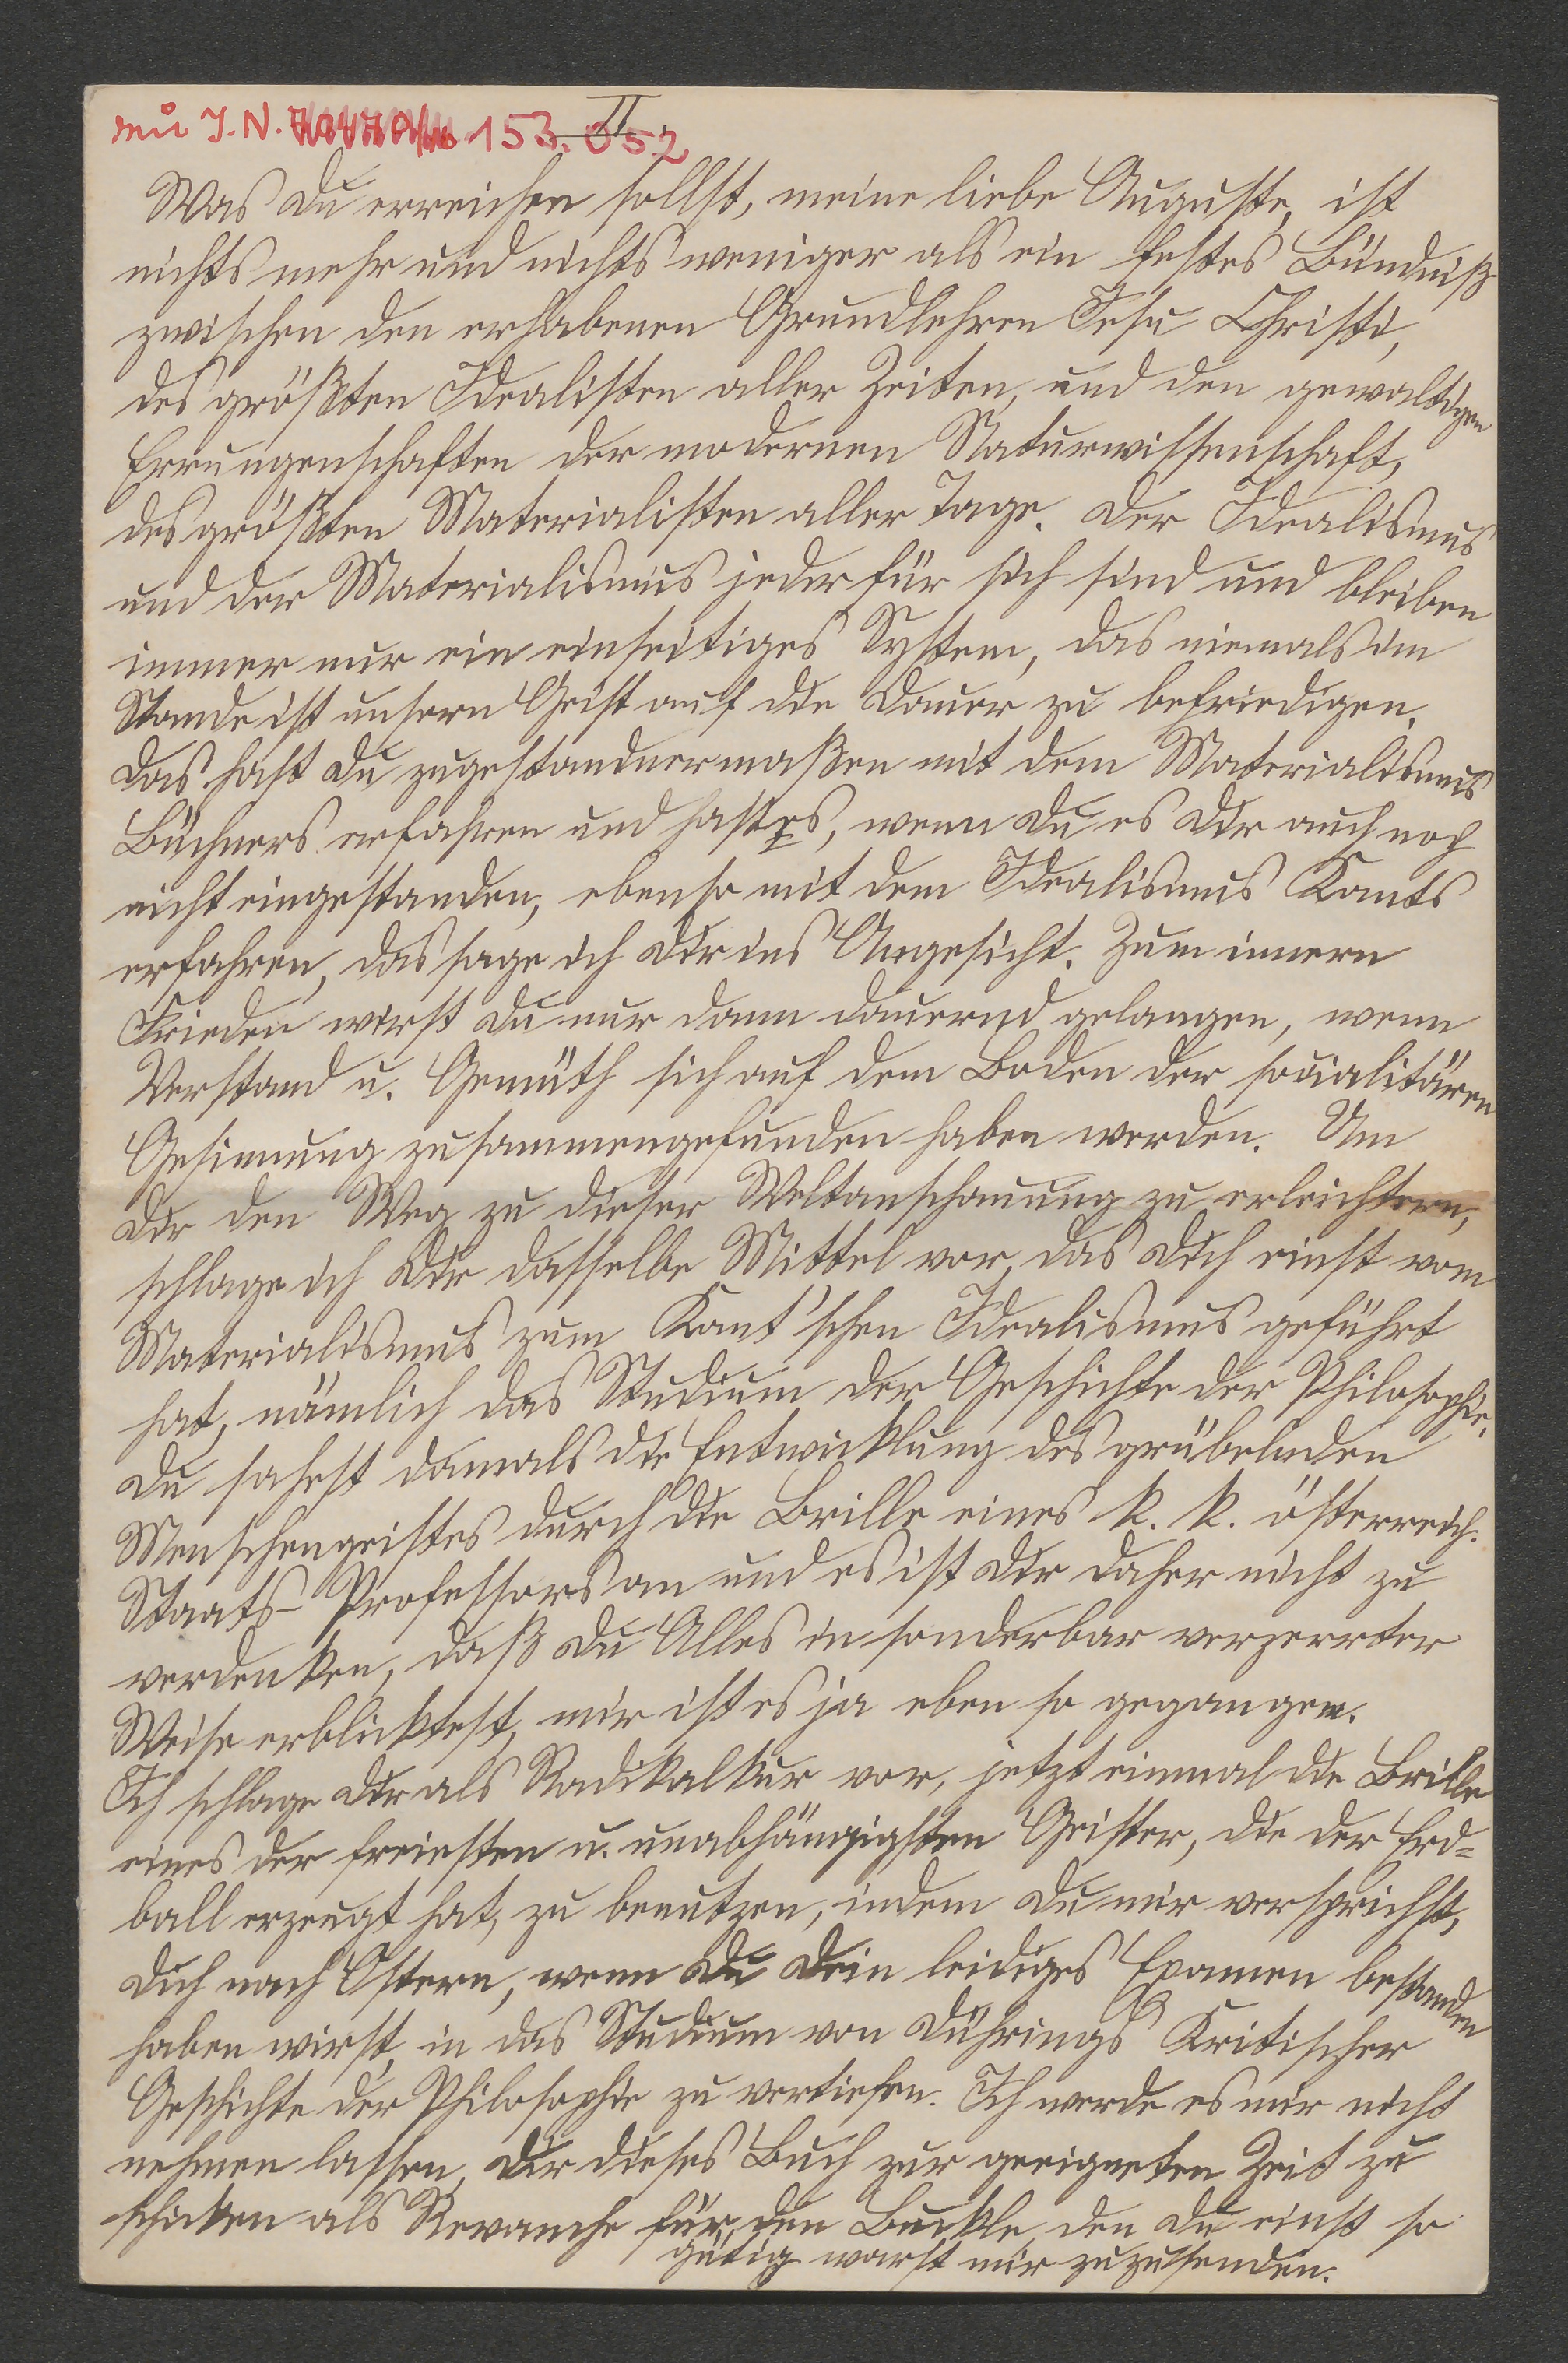 zu I.N. 153.052
II.
Was Du erreichen sollst, meine liebe Auguste, ist
nichts mehr und nichts weniger als ein festes Bündniß
zwischen den erhabenen Grundlehren Jesu Christi,
des größten Idealisten aller Zeiten, und den gewaltigen
Errungenschaften der modernen Naturwissenschaft,
des größten Materialisten aller Tage. Der Idealismus
und der Materialismus jeder für sich sind und bleiben
immer nur ein einseitiges System, das niemals im
Stande ist unsern Geist auf die Dauer zu befriedigen.
Das hast Du zugestandnermaßen mit dem Materialismus
Büchners erfahren und hast es, wenn Du es Dir auch noch
nicht eingestanden, ebenso mit dem Idealismus Kants
erfahren, das sage ich Dir ins Angesicht. Zum innern
Frieden wirst Du nur dann dauernd gelangen, wenn
Verstand u. Gemüth sich auf dem Boden der socialitären
Gesinnung zusammengefunden haben werden. Um
Dir den Weg zu dieser Weltanschauung zu erleichtern,
schlage ich Dir dasselbe Mittel vor, das Dich einst vom
Materialismus zum Kant'schen Idealismus geführt
hat, nämlich das Studium der Geschichte der Philosophie.
Du sahest damals die Entwicklung des grübelnden
Menschengeistes durch die Brille eines k. k. österreich.
Staats-Professors an und es ist Dir daher nicht zu
verdenken, daß Du Alles in sonderbar verzerrter
Weise erblicktest, mir ist es ja eben so gegangen.
Ich schlage Dir als Radikalkur vor, jetzt einmal die Brille
eines der freiesten u. unabhängigsten Geister, die der Erd=
ball erzeugt hat, zu benutzen, indem Du mir versprichst,
Dich nach Ostern, wenn Du Dein leidiges Examen bestanden
haben wirst, in das Studium von Dührings Kritischer
Geschichte der Philosophie zu vertiefen. Ich werde es mir nicht
nehmen lassen, Dir dieses Buch zur geeigneten Zeit zu
schicken als Revanche für den Buckle, den Du einst so
gütig warst mir zuzusenden.